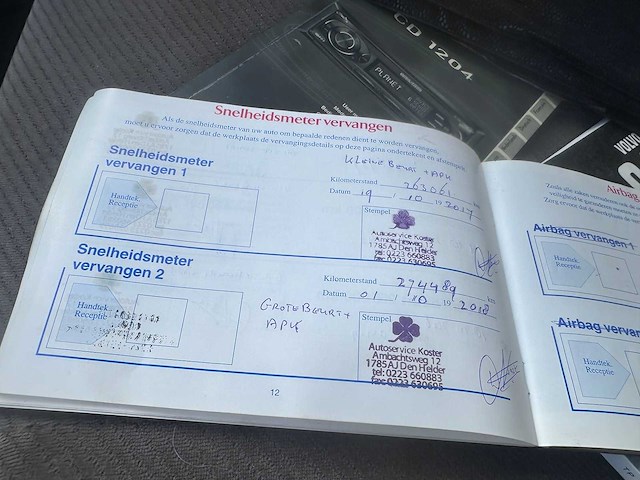 CD 1204
PLANET
VOLVO
Snelheidsmeter vervangen
Als de snelheidsmeter van uw auto om bepaalde redenen dient te worden vervangen,
moet u ervoor zorgen dat de werkplaats de vervangingsdetails op deze pagina ondertekent en afstempelt.
Snelheidsmeter
vervangen 1
Handtek.
Receptie
Kleine Beurt + APK
Kilometerstand 263061
Datum 19 10 19 2017
Stempel
Autoservice Koster
Ambachtsweg 12
1785 AJ Den Helder
tel: 0223 660883
fax: 0223 630695
Snelheidsmeter
vervangen 2
Handtek.
Receptie
Grote Beurt +
APK
Kilometerstand 274489 km
Datum 01 10 19 2018
Stempel
Autoservice Koster
Ambachtsweg 12
1785 AJ Den Helder
tel: 0223 660883
fax: 0223 630695
12
Airbag
Airbag vervangen 1
Handtek.
Receptie
Airbag verva
Handtek.
Receptie